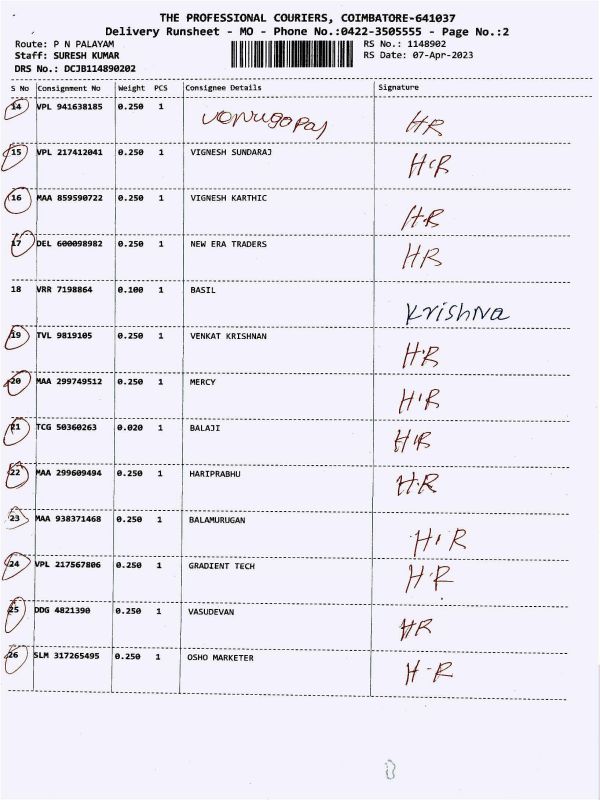 THE PROFESSIONAL COURIERS, COIMBATORE-641037
Delivery Runsheet - MO - Phone No.:0422-3505555 - Page No.:2
Route: P N PALAYAM RS No.: 1148902
Staff: SURESH KUMAR RS Date: 07-Apr-2023
DRS No.: DCJB114890202
S No Consignment No Weight PCS Consignee Details Signature
14 VPL 941638185 0.250 1 venugopal HR
15 VPL 217412041 0.250 1 VIGNESH SUNDARAJ H·R
16 MAA 859590722 0.250 1 VIGNESH KARTHIC H·R
17 DEL 600098982 0.250 1 NEW ERA TRADERS HR
18 VRR 7198864 0.100 1 BASIL Krishna
19 TVL 9819105 0.250 1 VENKAT KRISHNAN H·R
20 MAA 299749512 0.250 1 MERCY H'R
21 TCG 50360263 0.020 1 BALAJI H'R
22 MAA 299609494 0.250 1 HARIPRABHU H·R
23 MAA 938371468 0.250 1 BALAMURUGAN H'R
24 VPL 217567806 0.250 1 GRADIENT TECH H·R
25 DDG 4821390 0.250 1 VASUDEVAN HR
26 SLM 317265495 0.250 1 OSHO MARKETER H-R